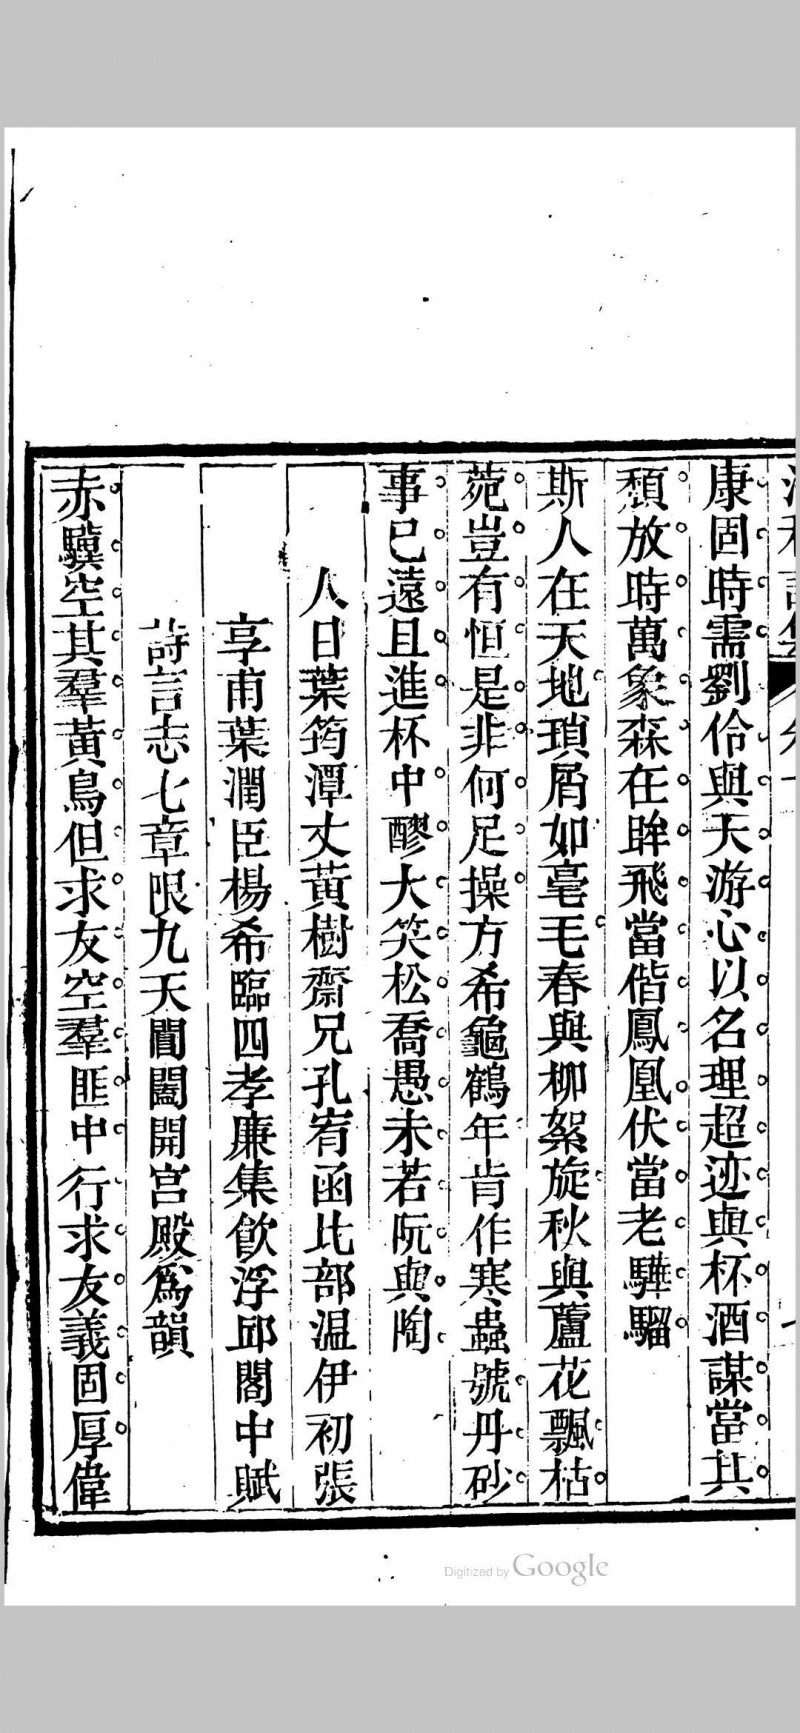 康固時需劉伶與天游心以名理超迹與杯酒謀當其
頹放時萬象森在眸飛當偕鳳凰伏當老驊騮
斯人在天地瑣屑如毫毛春與柳絮旋秋與蘆花飄枯
菀豈有恒是非何足操方希龜鶴年肯作寒蟲號丹砂
事已遠且進杯中醪大笑松喬愚未若阮與陶
人日葉筠潭丈黃樹齋兄孔宥函比部温伊初張
亨甫葉潤臣楊希臨四孝廉集飲浮邱閣中賦
詩言志七章限九天閶闔開宫殿爲韻
赤驥空其羣黃鳥但求友空羣匪中行求友義固厚偉
Digitized by Google